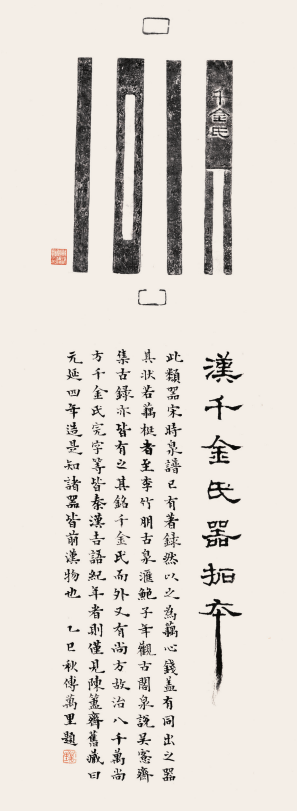 千金氏
漢千金氏器拓本
此類器宋時泉譜已有著録然以之為藕心錢蓋有同出之器
其狀若藕梃者至李竹朋古泉滙鮑子年觀古閣泉說吴愙齋
集古録亦皆有之其銘千金氏而外又有尚方故治八千萬尚
方千金氏完字等皆秦漢吉語紀年者則僅見陳簠齋舊藏曰
元延四年造是知諸器皆前漢物也 乙巳秋傅萬里題